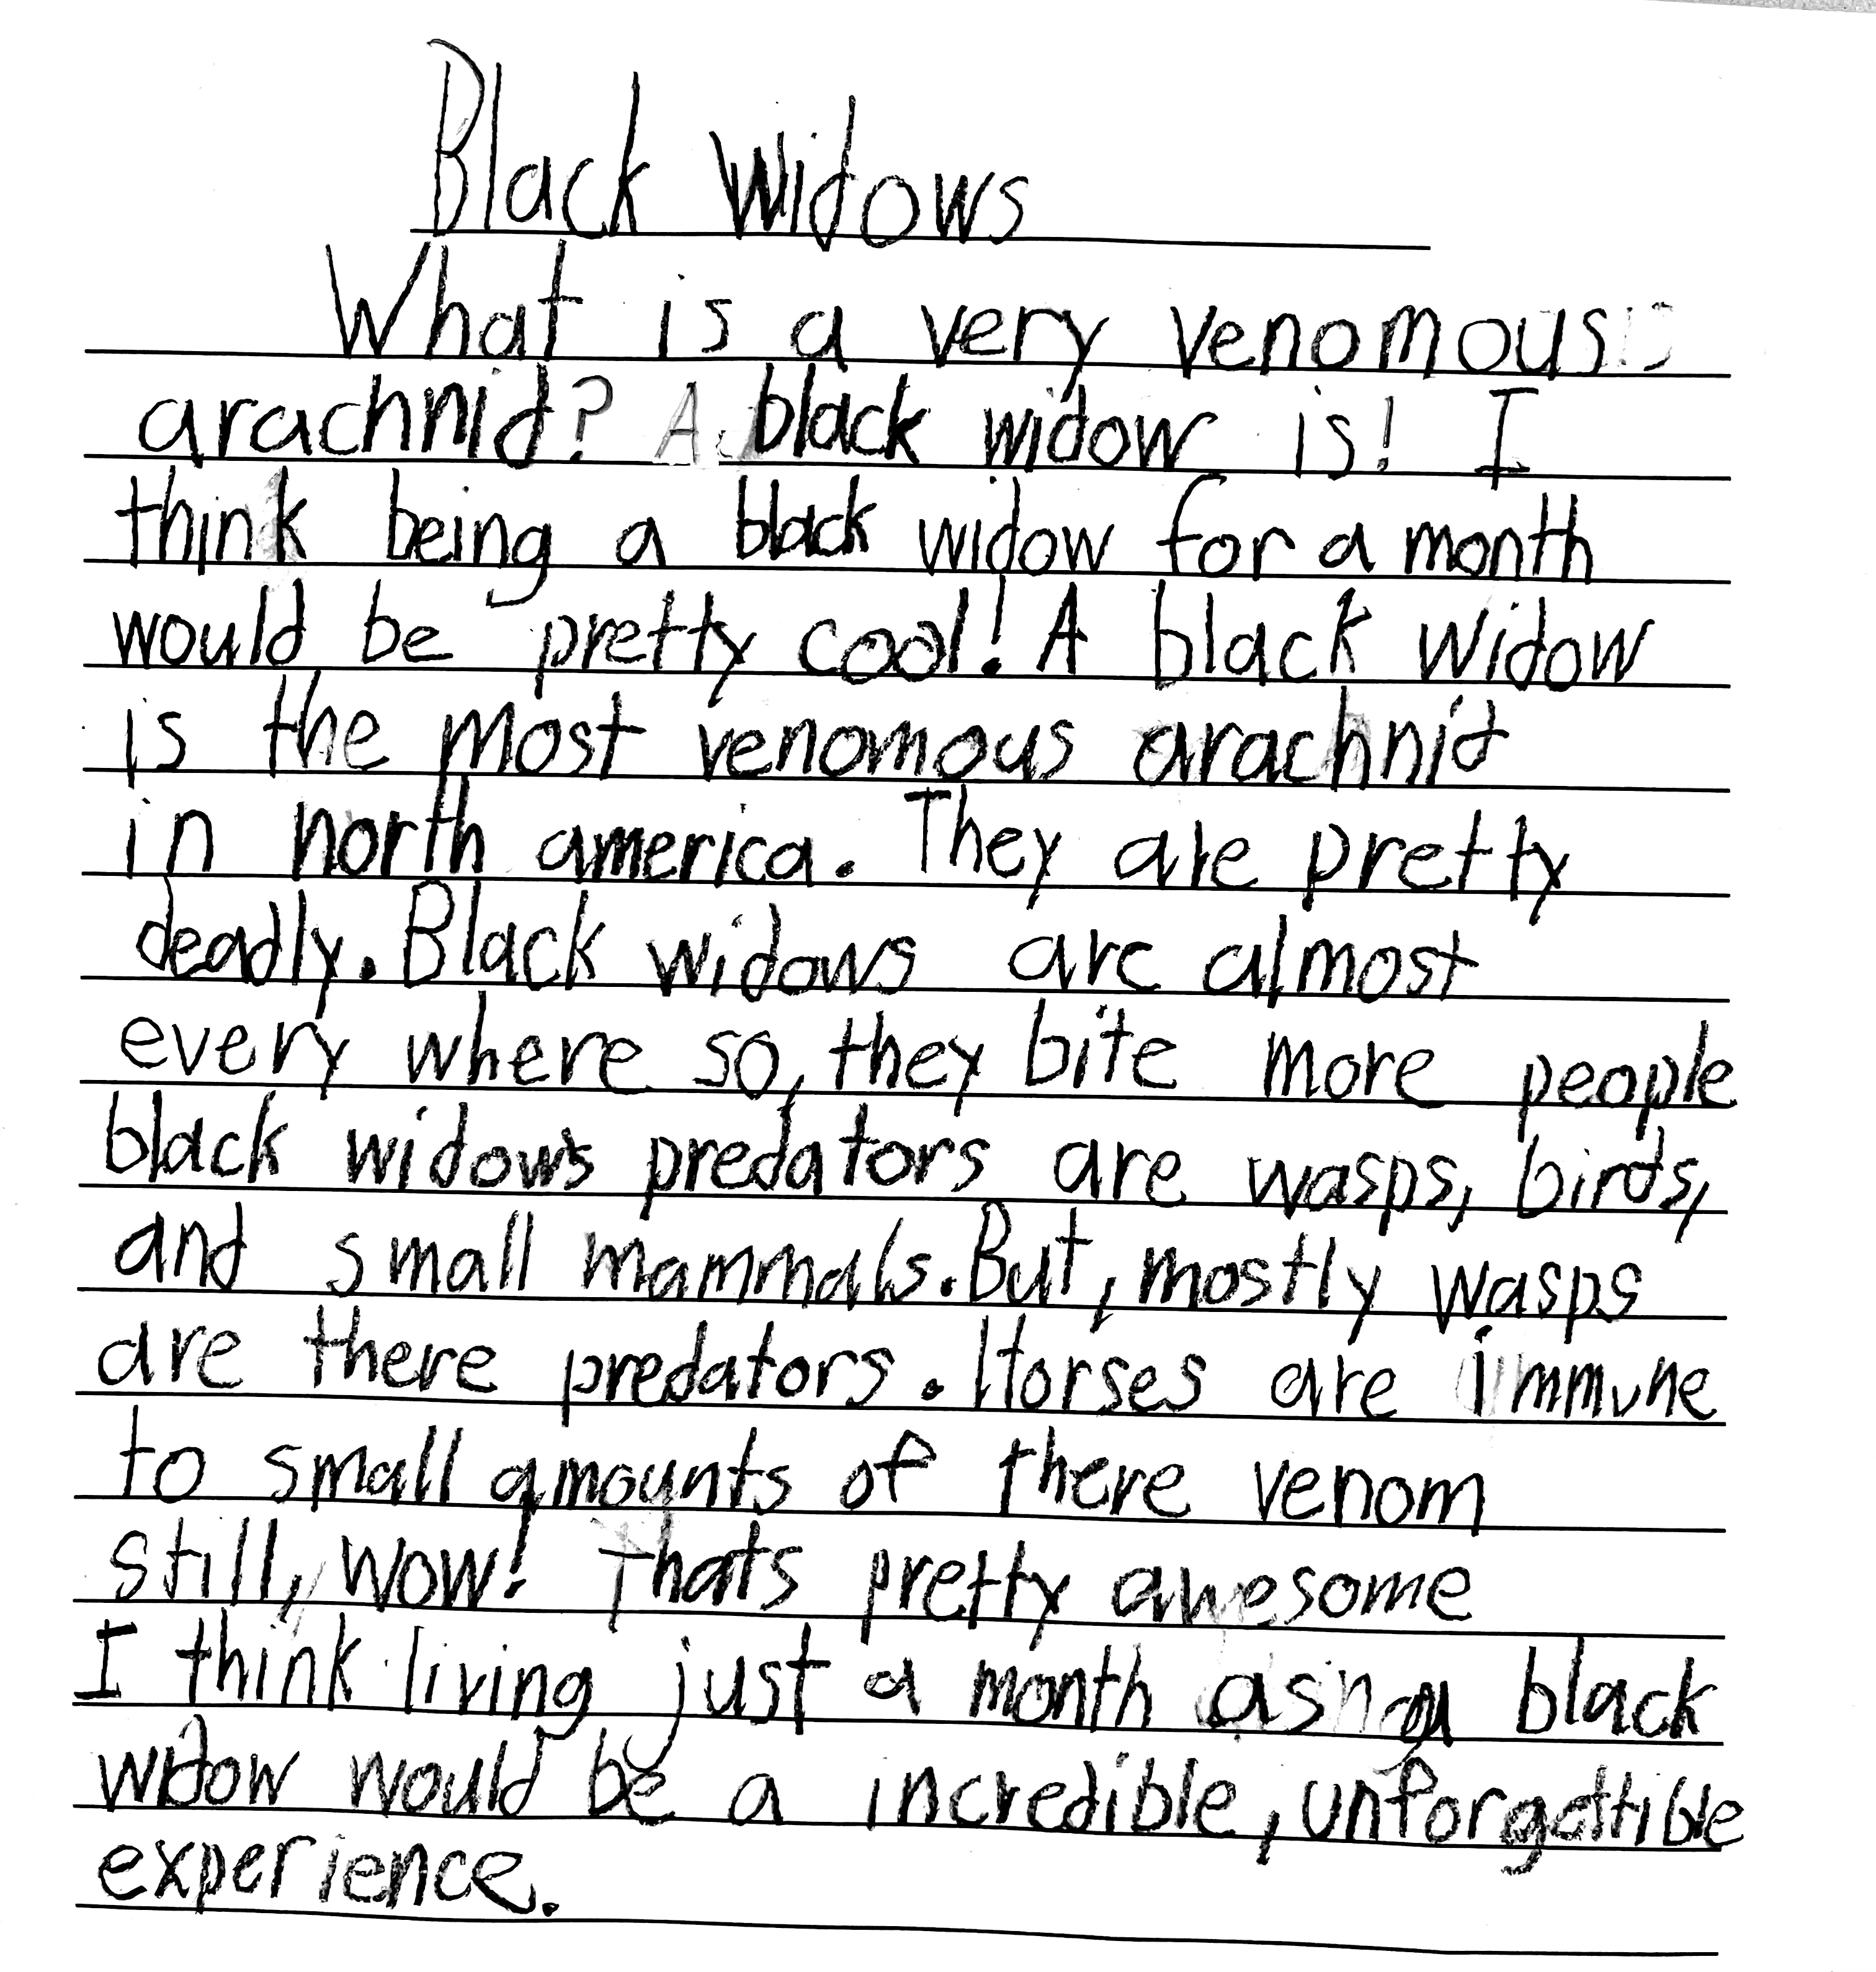 Black Widows
What is a very venomous
arachnid? A black widow is! I
think being a black widow for a month
would be pretty cool! A black widow
is the most venomous arachnid
in north america. They are pretty
deadly. Black widows are almost
every where so, they bite more people
black widows predators are wasps, birds,
and small mammals. But, mostly wasps
are there predators. Horses are immune
to small amounts of there venom
still, wow! Thats pretty awesome
I think living just a month as a black
widow would be a incredible, unforgattible
experience.